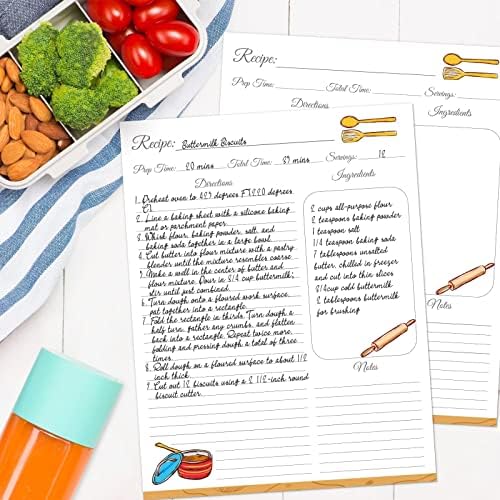 Recipe:
Prep Time: Total Time: Servings:
Directions Ingredients
Notes
Recipe: Buttermilk Biscuits
Prep Time: 20 mins Total Time: 37 mins Servings: 12
Directions
1. Preheat oven to 425 degrees F[220 degrees
C].
2. Line a baking sheet with a silicone baking
mat or parchment paper.
3. Whisk flour, baking powder, salt, and
baking soda together in a large bowl.
4. Cut butter into flour mixture with a pastry
blender until the mixture resembles coarse
5. Make a well in the center of butter and
flour mixture. Pour in 3/4 cup buttermilk;
stir until just combined.
6. Turn dough onto a floured work surface,
pat together into a rectangle.
7. Fold the rectangle in thirds. Turn dough a
half turn, gather any crumbs, and flatten
back into a rectangle. Repeat twice more,
folding and pressing dough a total of three
times.
8. Roll dough on a floured surface to about 1/2
inch thick.
9. Cut out 12 biscuits using a 2 1/2-inch round
biscuit cutter.
Ingredients
2 cups all-purpose flour
2 teaspoons baking powder
1 teaspoon salt
1/4 teaspoon baking soda
7 tablespoons unsalted
butter, chilled in freezer
and cut into thin slices
3/4cup cold buttermilk
2 tablespoons buttermilk
for brushing
Notes